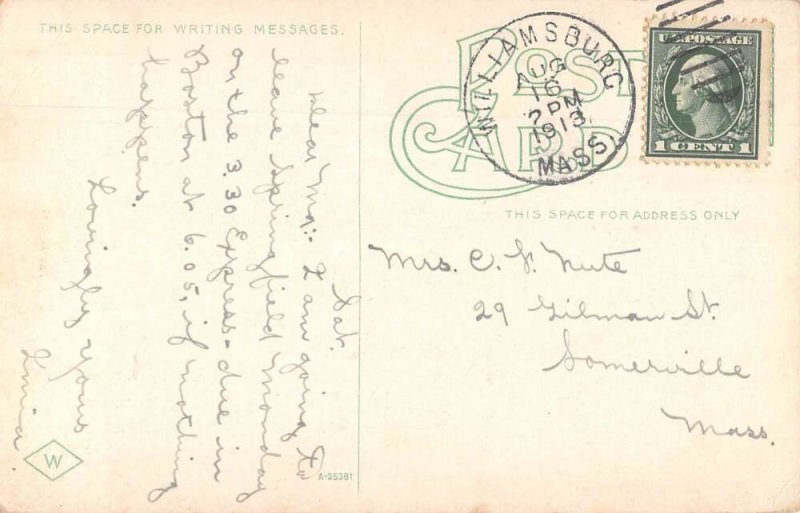 THIS SPACE FOR WRITING MESSAGES.
Sat.
Dear Ma:- I am going to
leave Springfield Monday
on the 3.30 Express - due in
Boston at 6.05, if nothing
happens.
Lovingly yours
W
A-25381
POST CARD
WILLIAMSBURG
AUG
16
2 PM
1913
MASS.
U.S. POSTAGE
1 CENT 1
THIS SPACE FOR ADDRESS ONLY
Mrs. C. F. Nute
29 Gilman St.
Somerville
Mass.